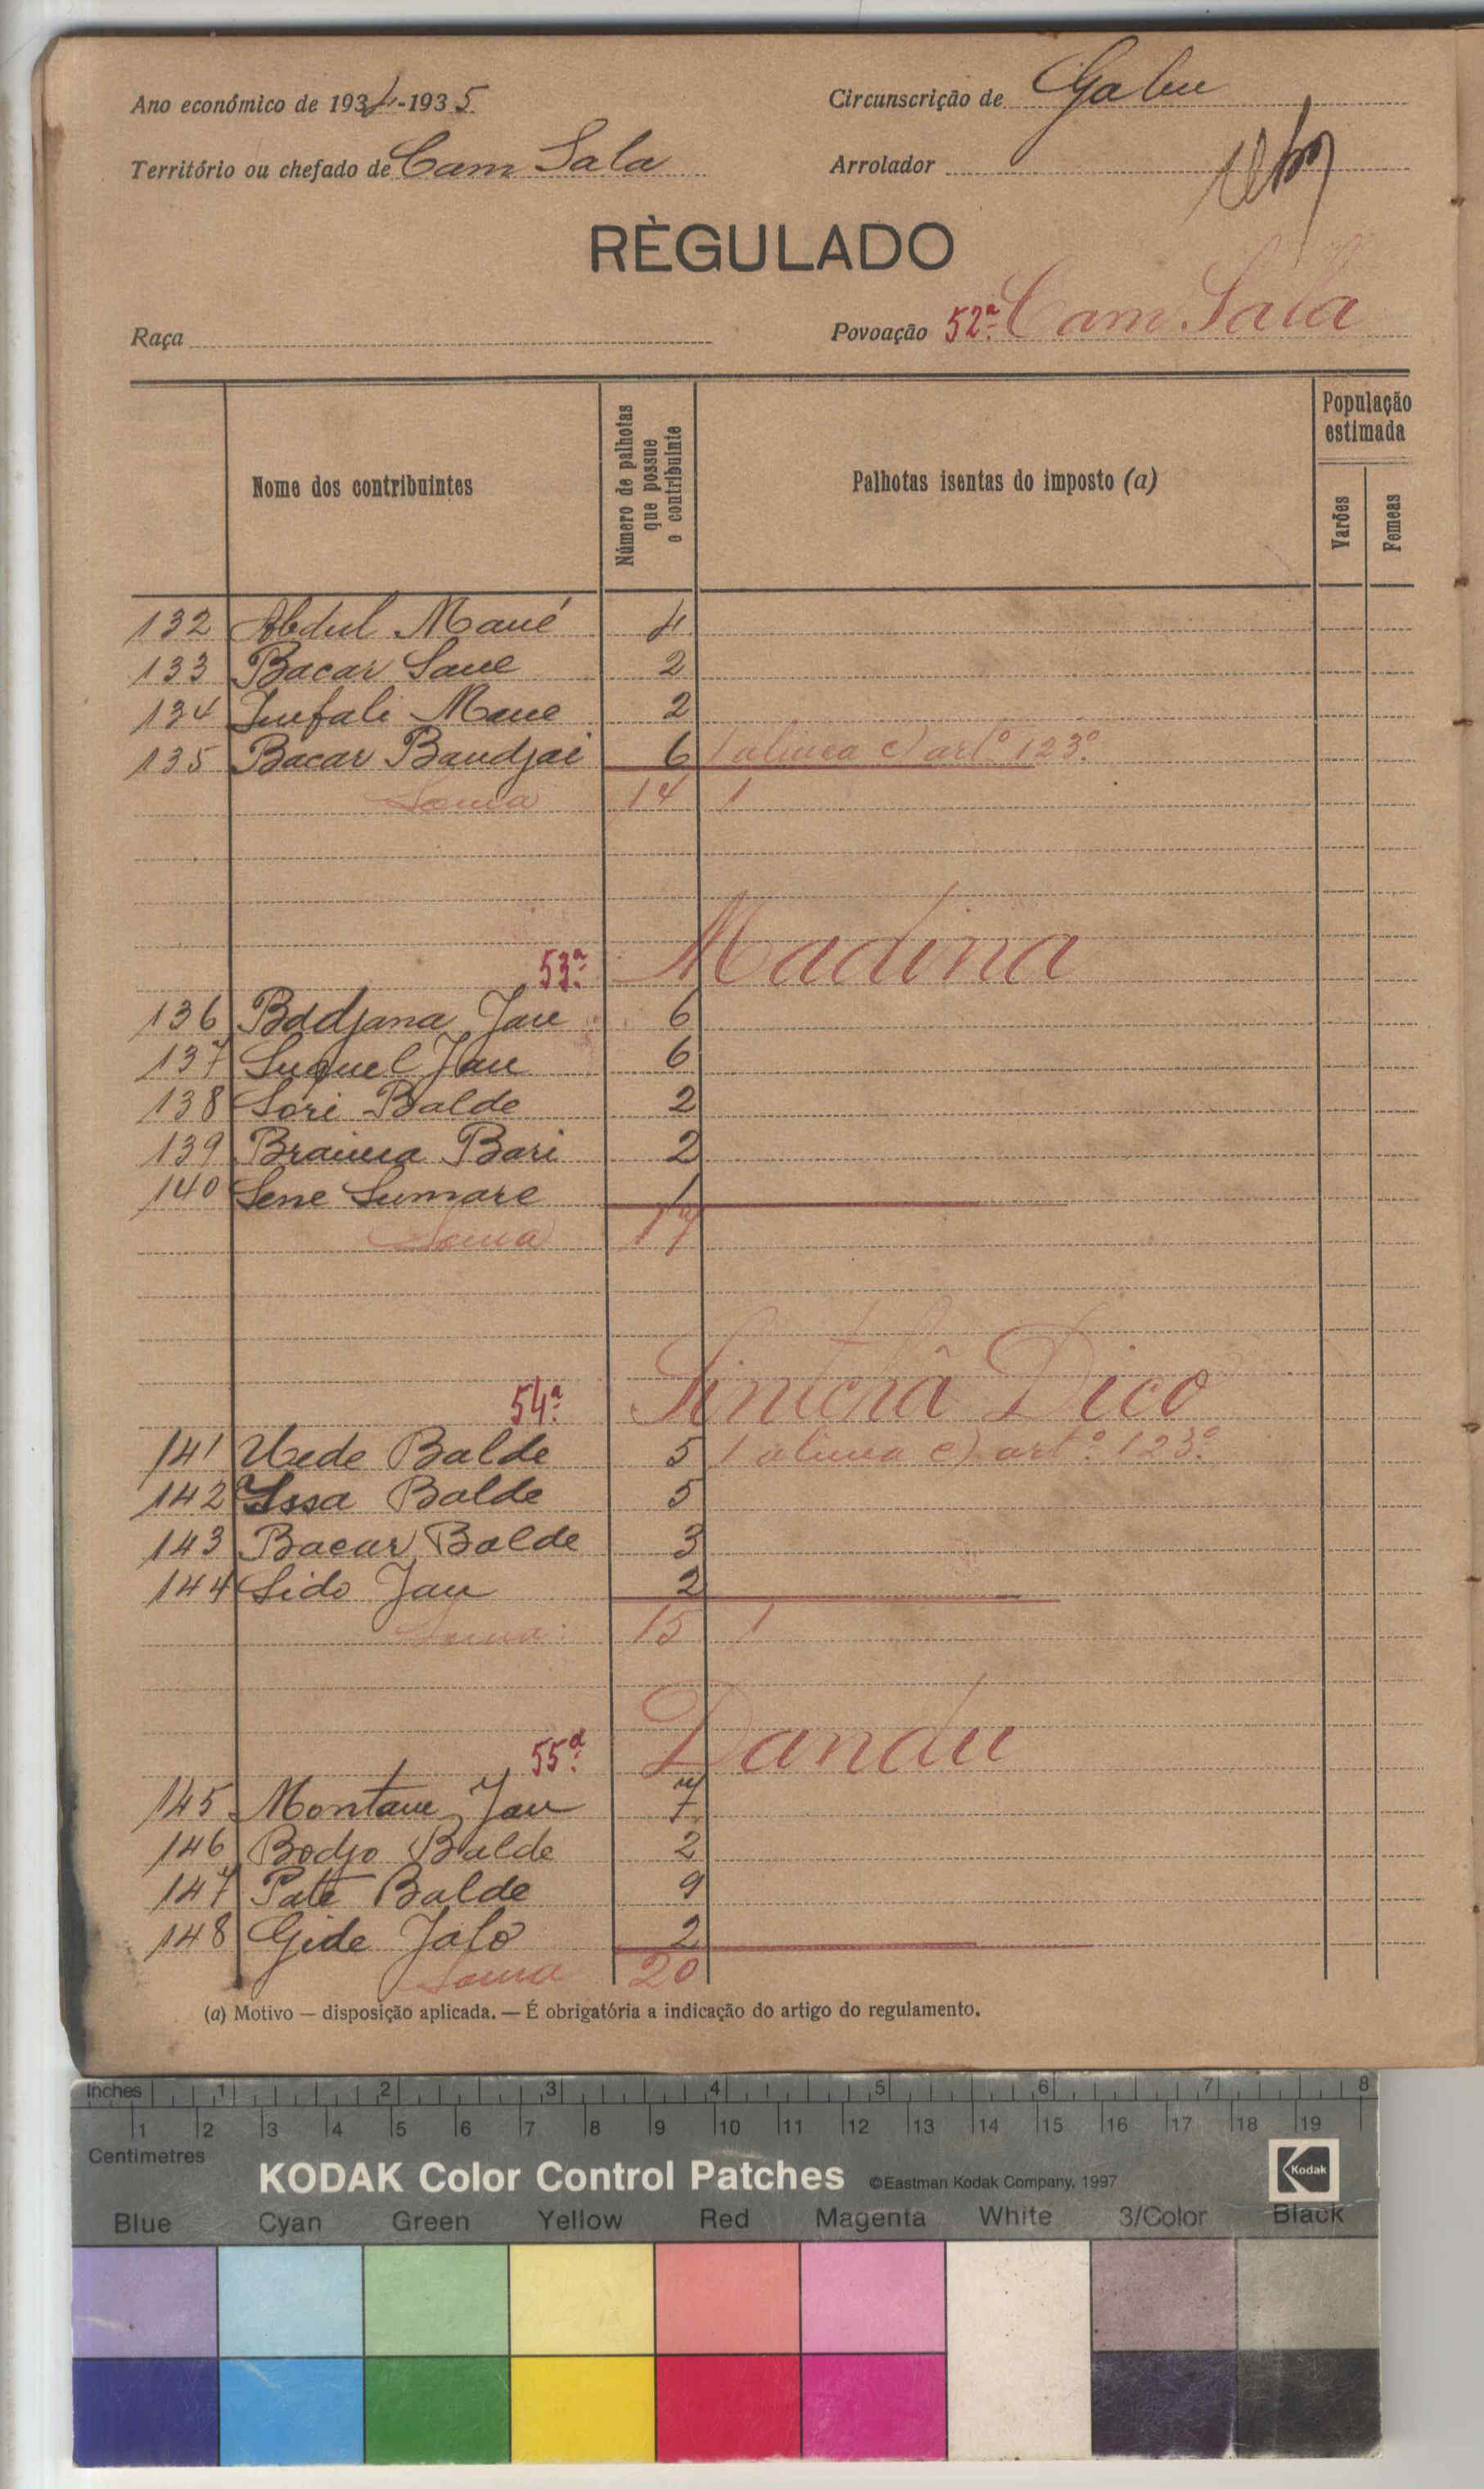 Ano económico de 1934-1935 Circunscrição de Gabu
Território ou chefado de Cam Sala Arrolador
RÈGULADO
Raça Povoação 52ª Cam Sala
Nome dos contribuintes
Número de palhotas que possue o contribuinte
Palhotas isentas do imposto (a)
População estimada
Varões
Femeas
132 Abdul Mané 4
133 Bacar Sane 2
134 Infali Mane 2
135 Bacar Bandjai 6 1 alinea c) artº 123º
Soma 14 1
53ª Madina
136 Bddjana Jau 6
137 Suquel Jau 6
138 Sori Balde 2
139 Braima Bari 2
140 Sene Sumare 1
Soma 17
54ª Sintchã Dico
141 Uede Balde 5 1 alinea c) artº 123º
142 Issa Balde 5
143 Bacar Balde 3
144 Sido Jau 2
Soma 15 1
55ª Dandu
145 Montane Jau 7
146 Bodjo Balde 2
147 Pate Balde 9
148 Gide Jalo 2
Soma 20
(a) Motivo — disposição aplicada. — É obrigatória a indicação do artigo do regulamento.
Inches 1 2 3 4 5 6 7 8
1 2 3 4 5 6 7 8 9 10 11 12 13 14 15 16 17 18 19
Centimetres
KODAK Color Control Patches ©Eastman Kodak Company, 1997 Kodak
Blue Cyan Green Yellow Red Magenta White 3/Color Black